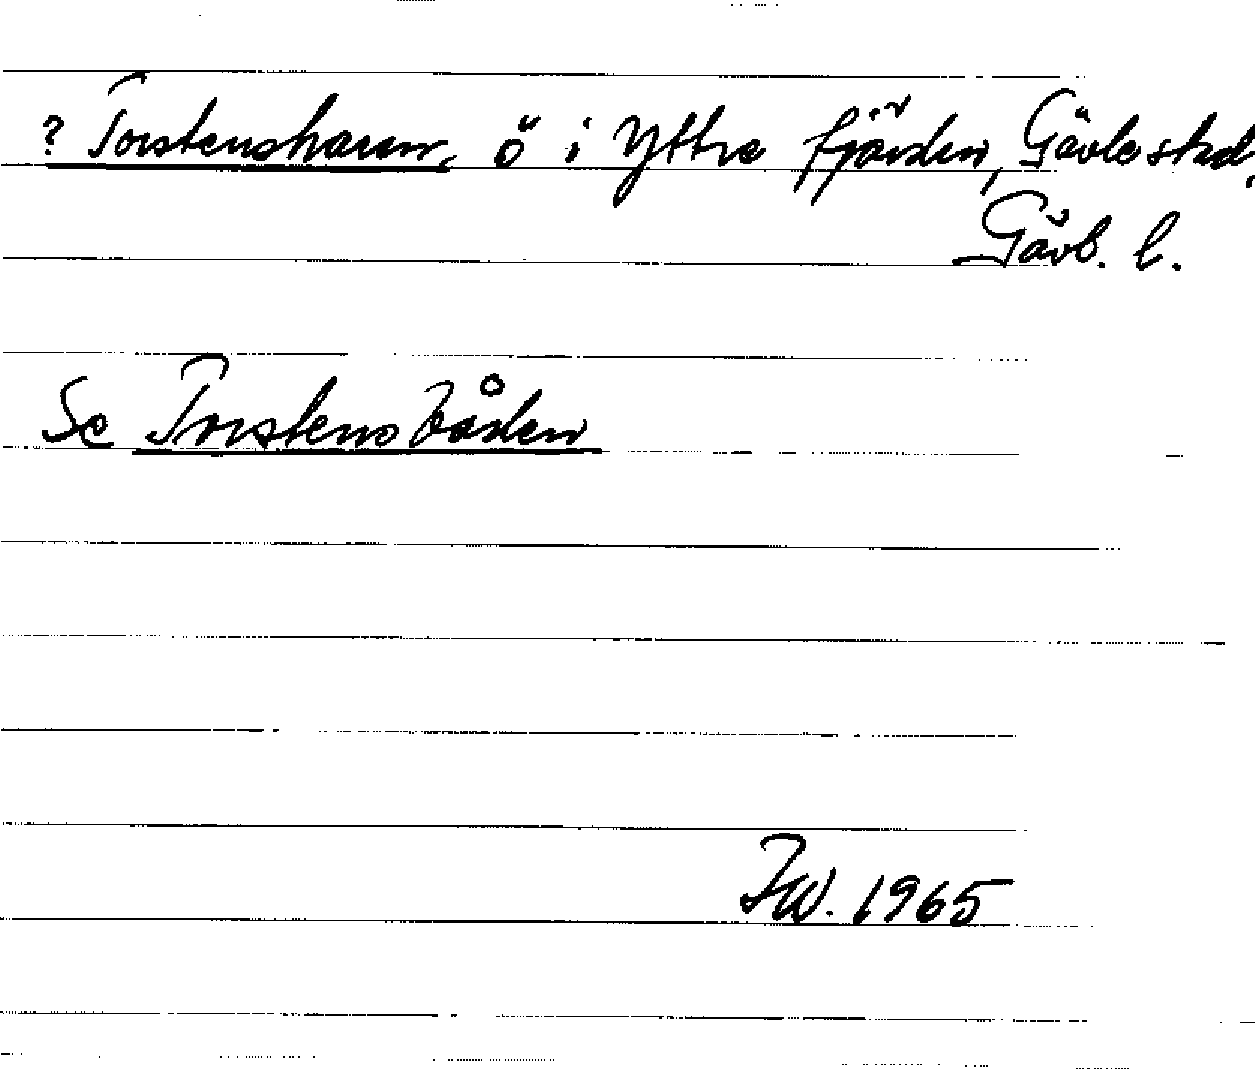 ? Torstensharen, ö i Yttre fjärden, Gävle stad,
Gävl. l.
Se Torstensbåden
IW. 1965